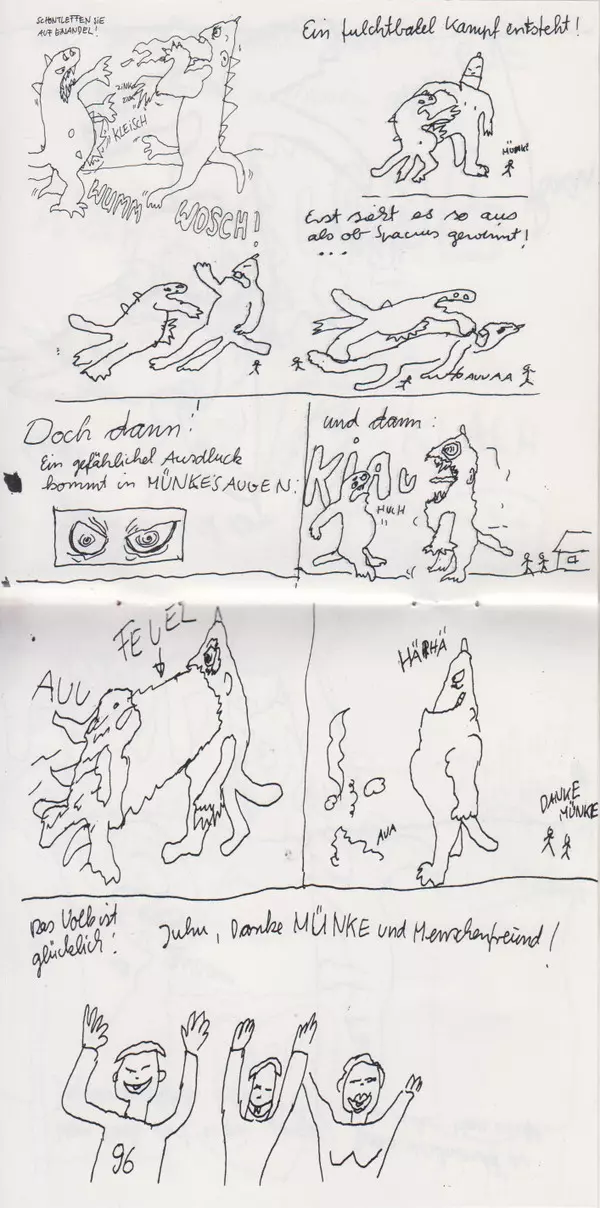 SCHON TLEFFEN SIE
AUF EINANDEL!
ZING
ZING
KLEISCH
WUMM
WOSCH!
Ein fulchtbalel Kampf entsteht!
MÜNKE!
Erst sieht es so aus
als ob Spacius gewinnt!
...
AUUAA
Doch dann!
Ein gefählichel Ausdluck
kommt in MÜNKES AUGEN:
und dann:
KIAU
HUCH
FEUEL
AUU
HÄHÄ
AUA
DANKE
MÜNKE
Das Volk ist
glücklich!
Juhu, Danke MÜNKE und Menschenfreund!
96